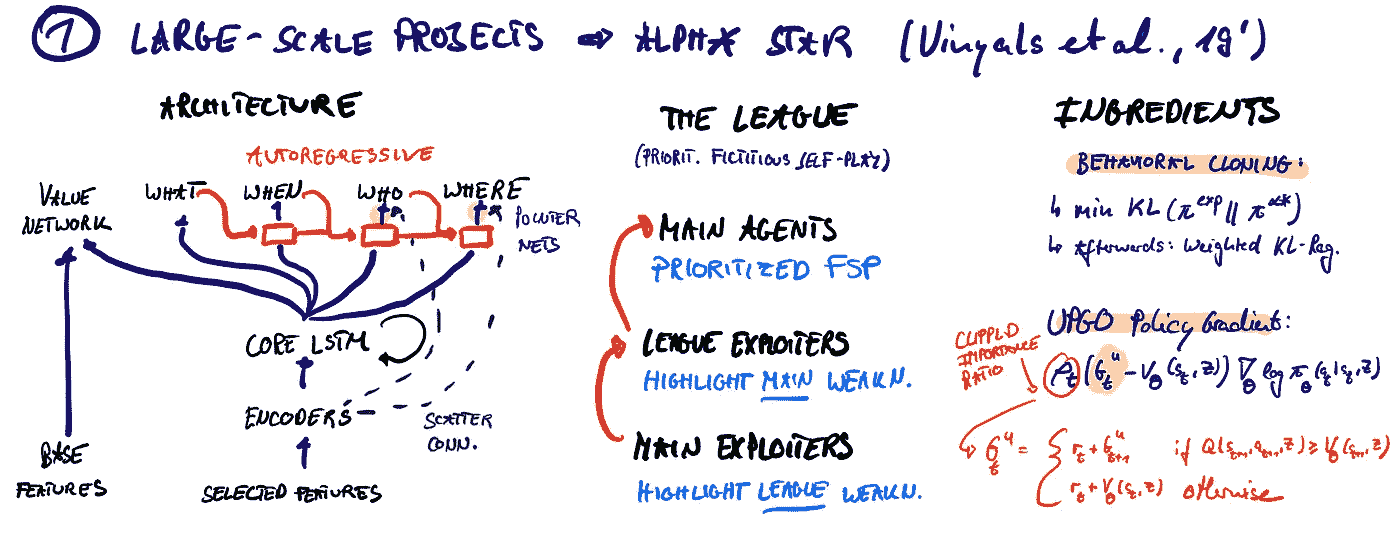 1 LARGE-SCALE PROJECTS ⇒ ALPHA STAR (Vinyals et al., 19')
ARCHITECTURE
AUTOREGRESSIVE
WHAT WHEN WHO WHERE
VALUE
NETWORK
POINTER
NETS
CORE LSTM
ENCODERS
SCATTER
CONN.
BASE
FEATURES
SELECTED FEATURES
THE LEAGUE
(PRIORIT. FICTITIOUS SELF-PLAY)
MAIN AGENTS
PRIORITIZED FSP
LEAGUE EXPLOITERS
HIGHLIGHT MAIN WEAKN.
MAIN EXPLOITERS
HIGHLIGHT LEAGUE WEAKN.
INGREDIENTS
BEHAVIORAL CLONING:
↳ min KL(π^exp || π^ack)
↳ Afterwards: Weighted KL-Reg.
UPGO Policy Gradient:
CLIPPED
IMPORTANCE
RATIO
ρ_t (G_t^u - V_θ(s_t, z)) ∇_θ log π_θ(a_t|s_t, z)
G_t^u = { r_t + G_{t+1}^u if Q(s_{t+1}, a_{t+1}, z) ≥ V_θ(s_{t+1}, z)
r_t + V_θ(s_t, z) otherwise